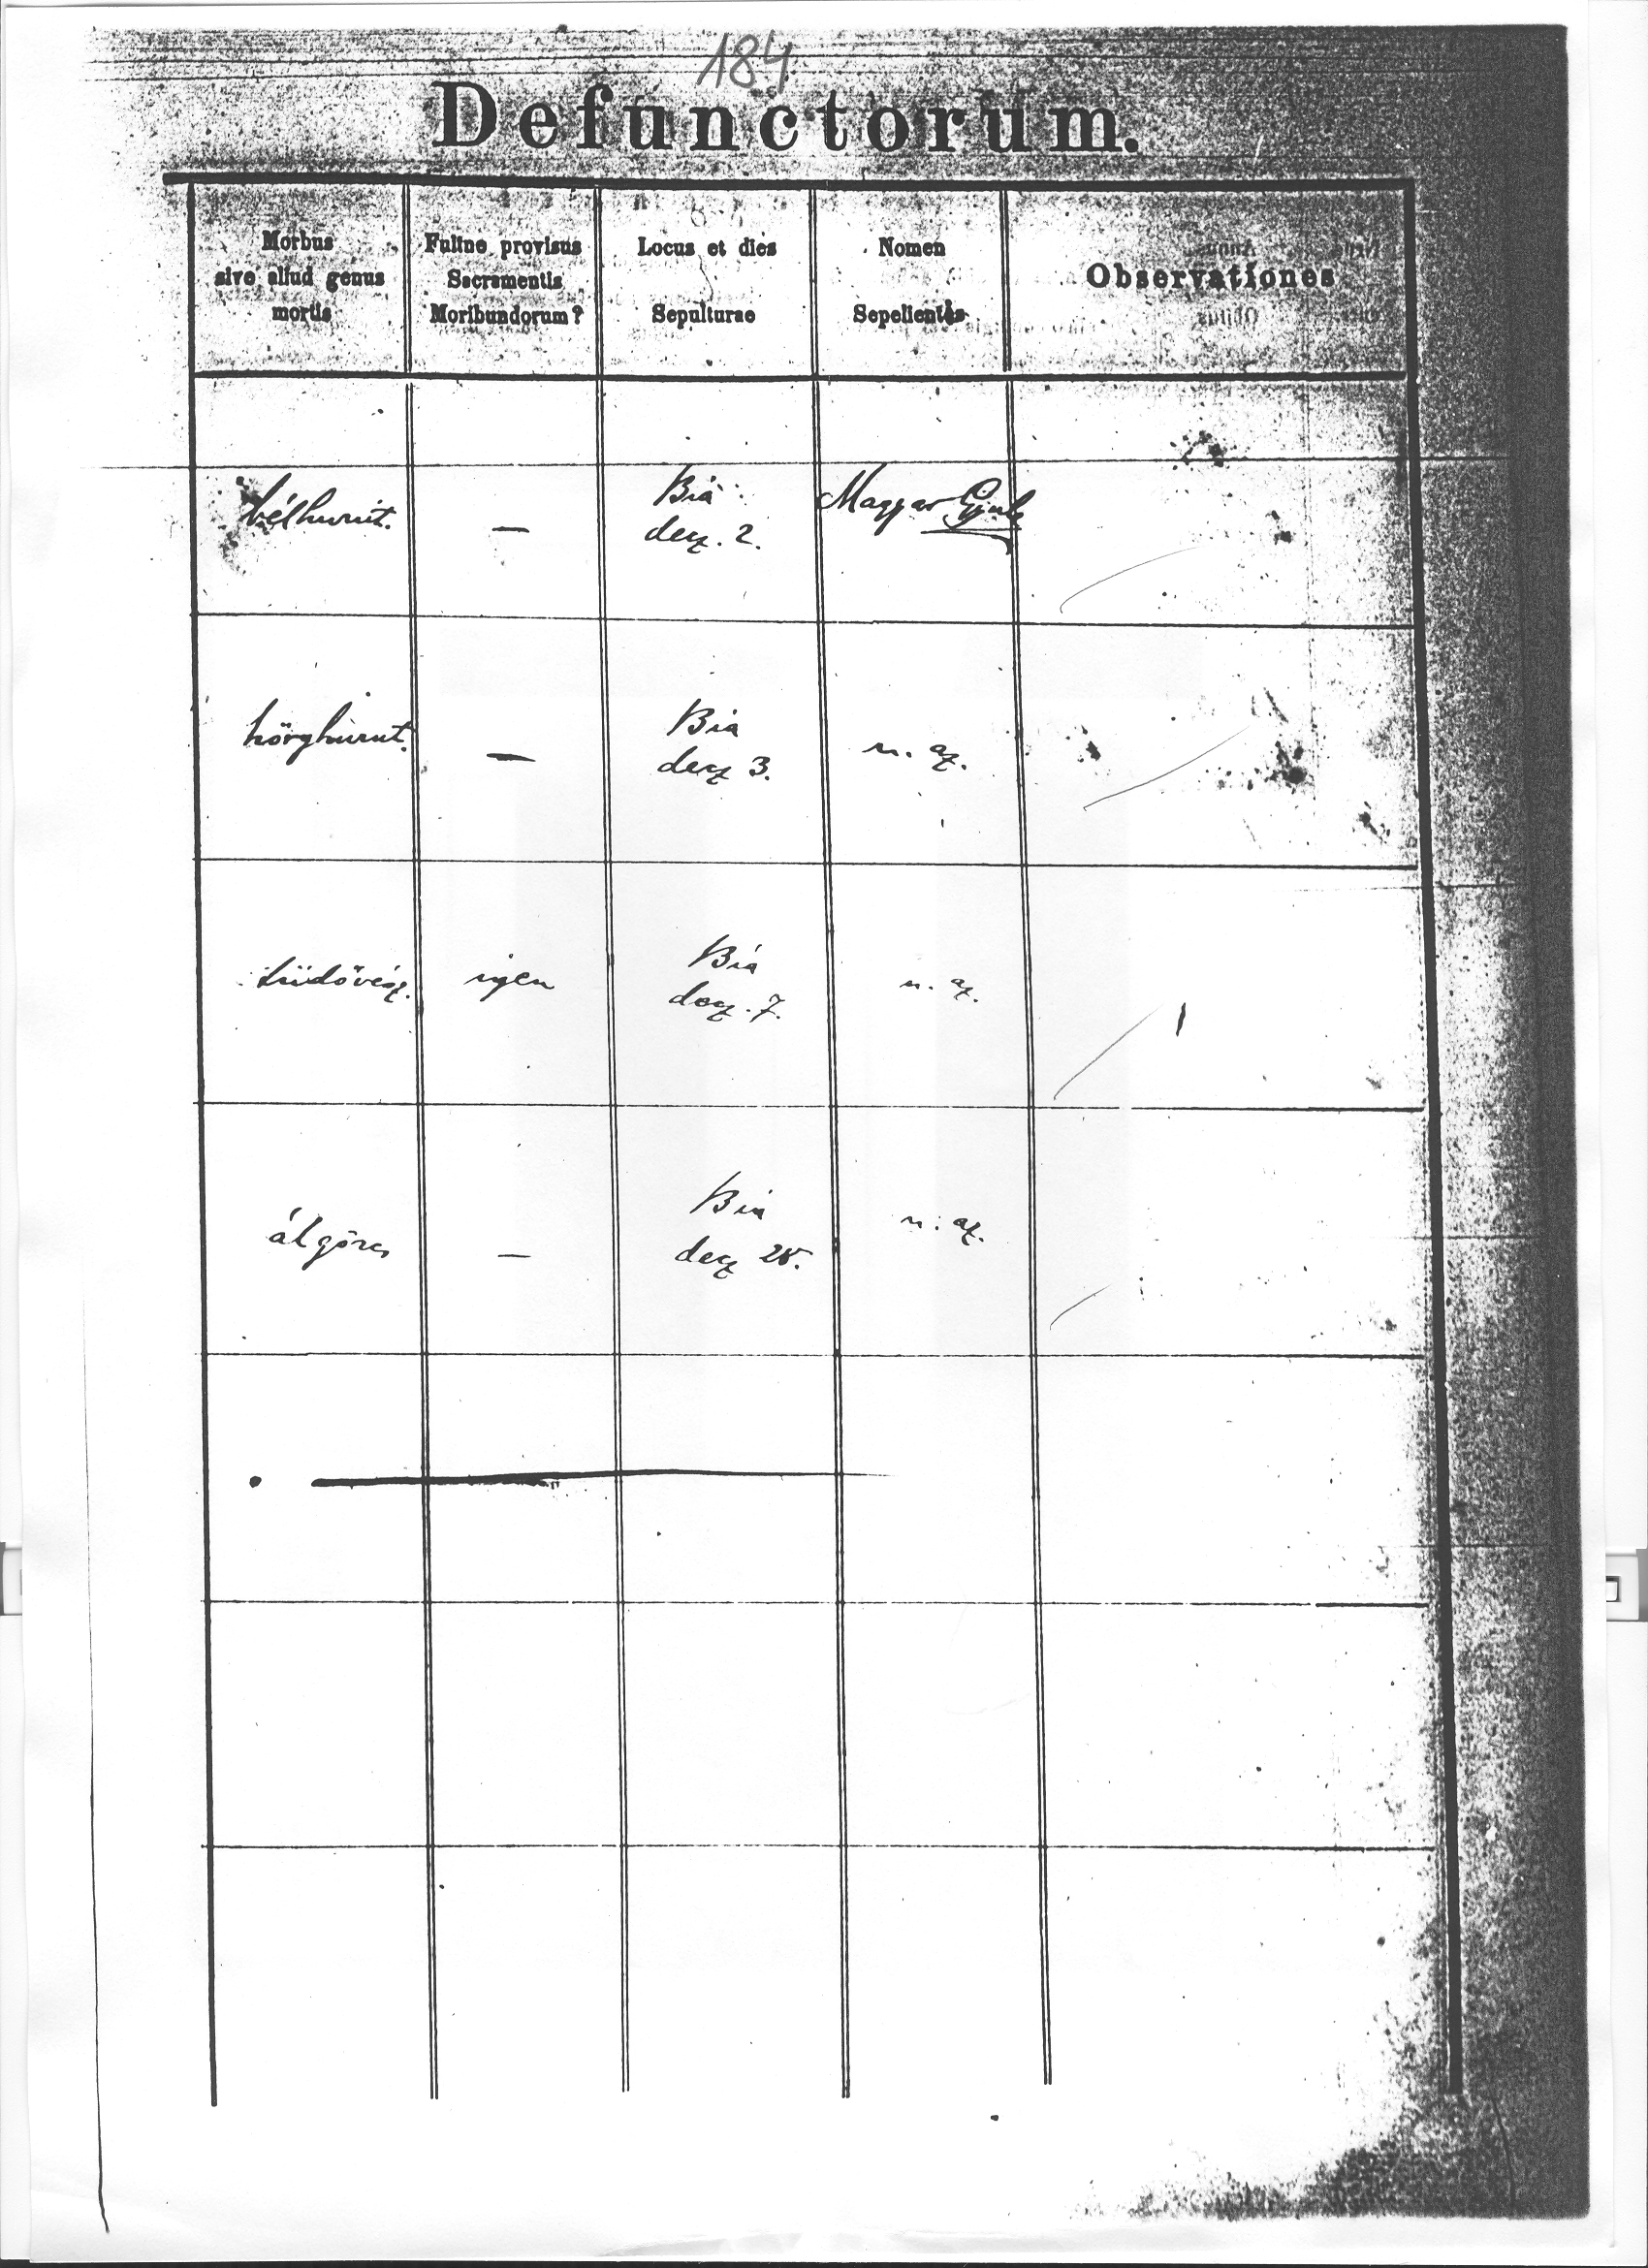 184
Defunctorum.
Morbus
sive aliud genus
mortis
Fuitne provisus
Sacramentis
Moribundorum?
Locus et dies
Sepulturae
Nomen
Sepelientis
Observationes
bélhurut.
—
Bia
decz. 2.
Magyar Gyula
hörghurut.
—
Bia
decz 3.
u. az.
tüdővész.
igen
Bia
decz. 7.
u. az.
álgörcs
—
Bia
decz
u. az.